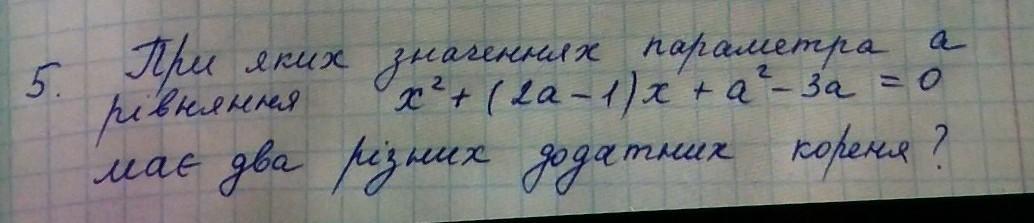 5. При яких значеннях параметра a
рівняння x² + (2a - 1)x + a² - 3a = 0
має два різних додатних кореня?